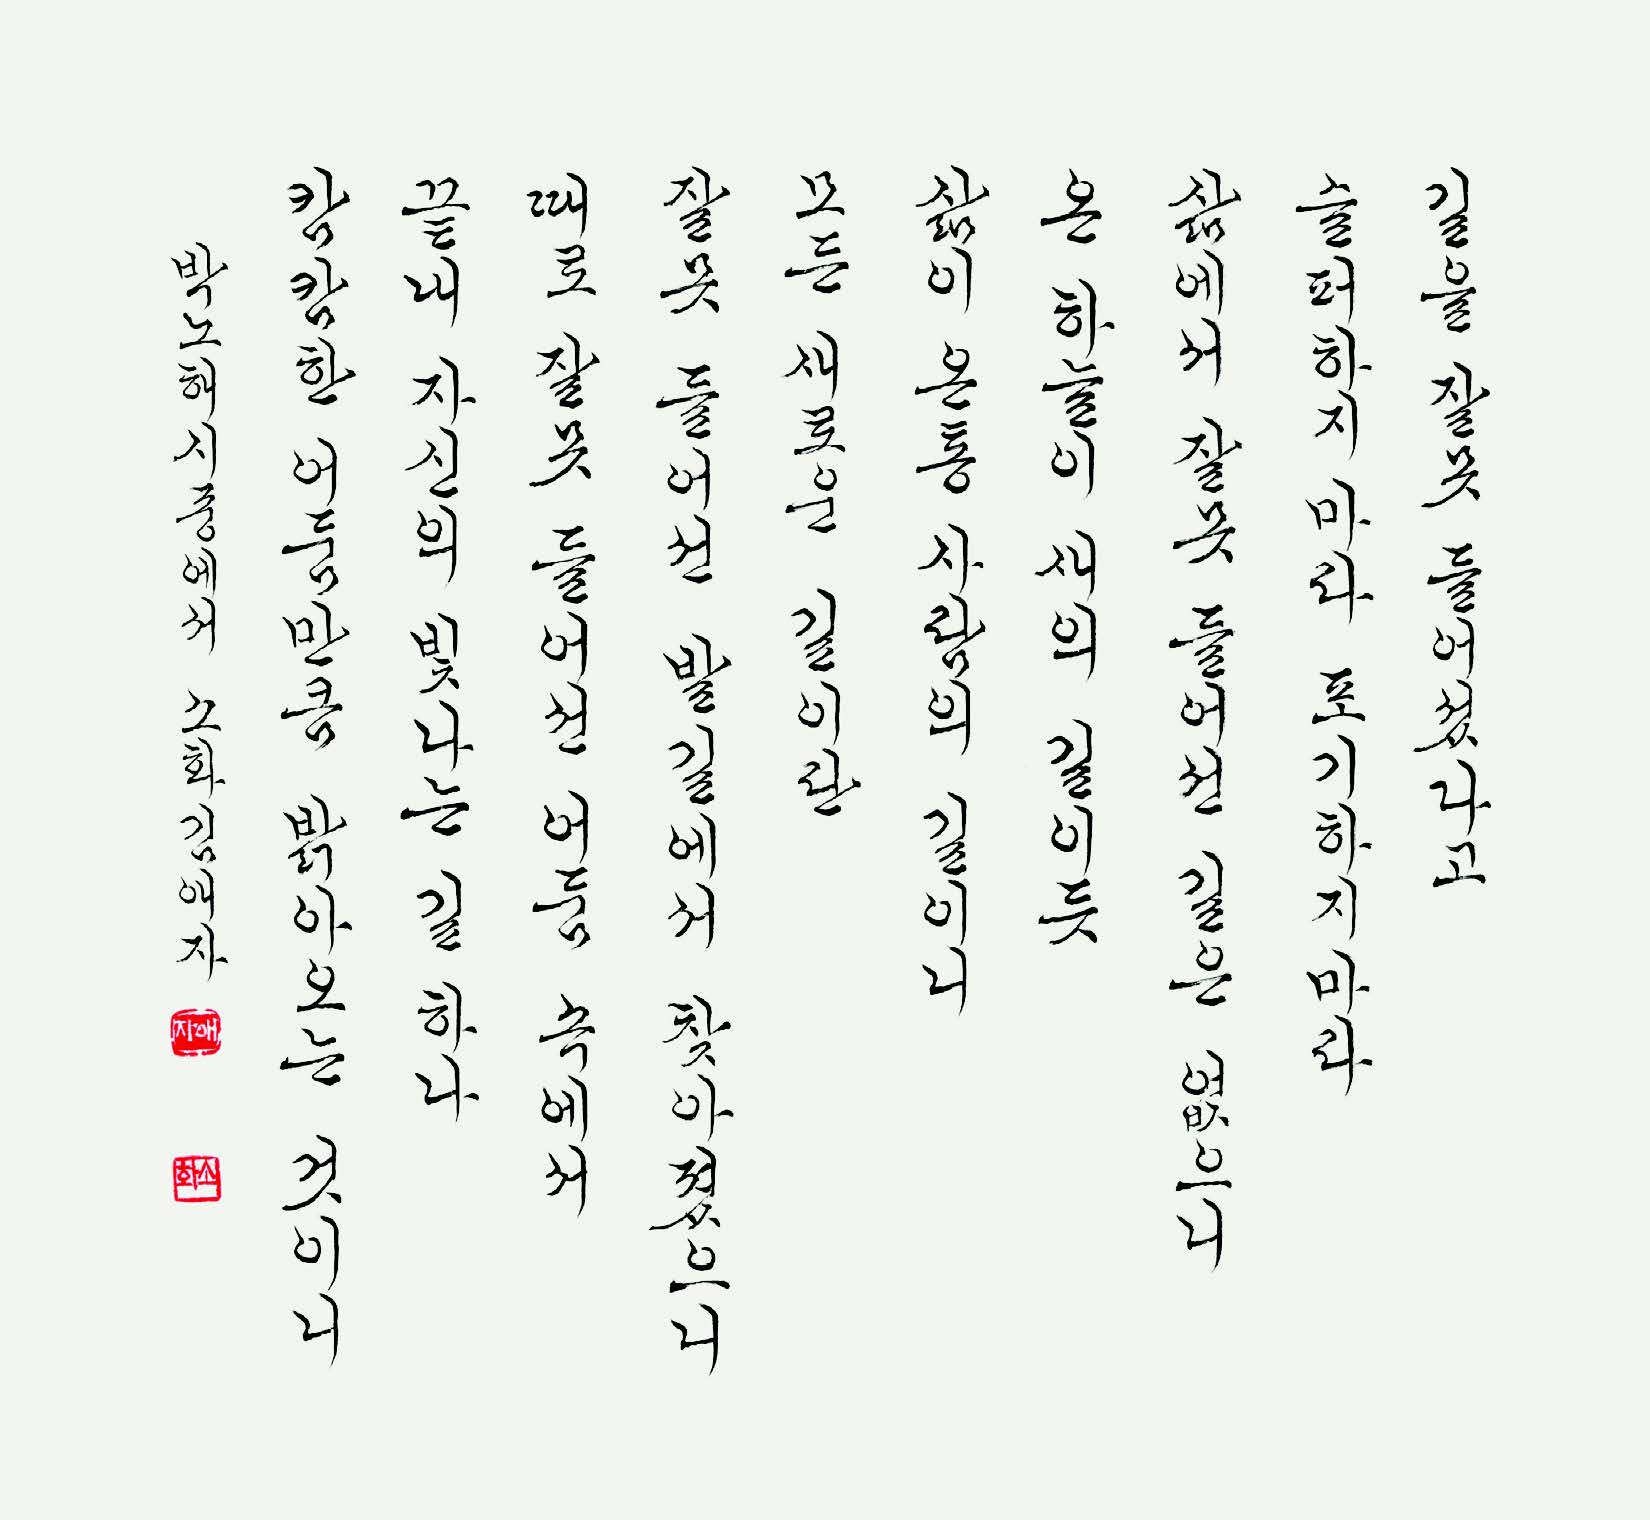 길을 잘못 들어섰다고
슬퍼하지 마라 포기하지 마라
삶에서 잘못 들어선 길은 없으니
온 하늘이 새의 길이듯
삶이 온통 사람의 길이니
모든 새로운 길이란
잘못 들어선 발길에서 찾아졌으니
때로 잘못 들어선 어둠 속에서
끝내 자신의 빛나는 길 하나
캄캄한 어둠만큼 밝아오는 것이니
박노해 시 중에서 소화 김애자
애자
소화